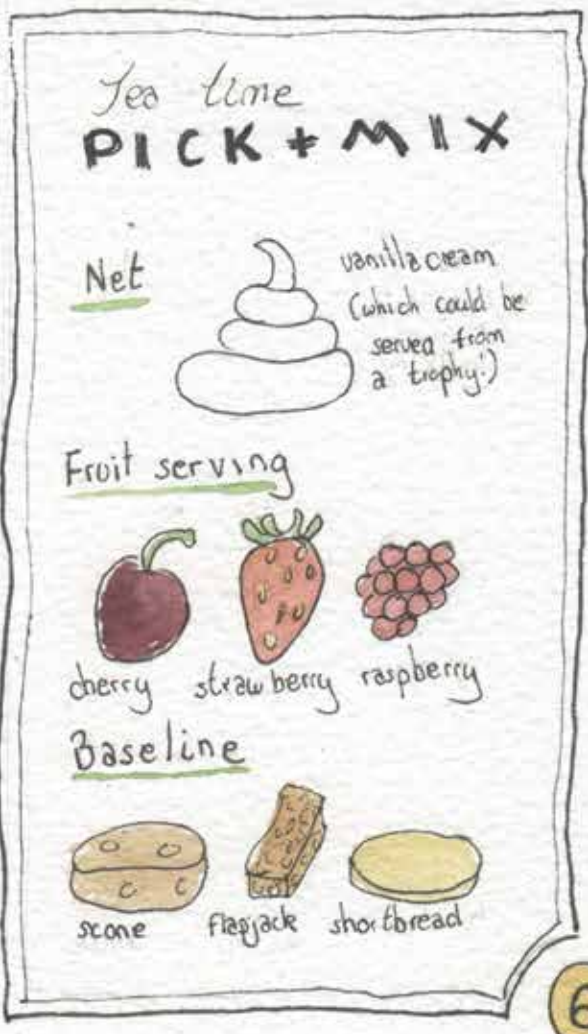 Tea time
PICK + MIX
Net
vanilla cream
(which could be
served from
a trophy!)
Fruit serving
cherry strawberry raspberry
Baseline
scone flapjack shortbread
6